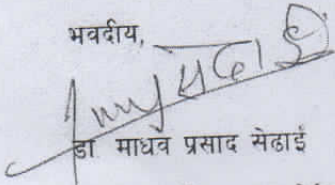 भवदीय,
डा माधव प्रसाद सेढाई